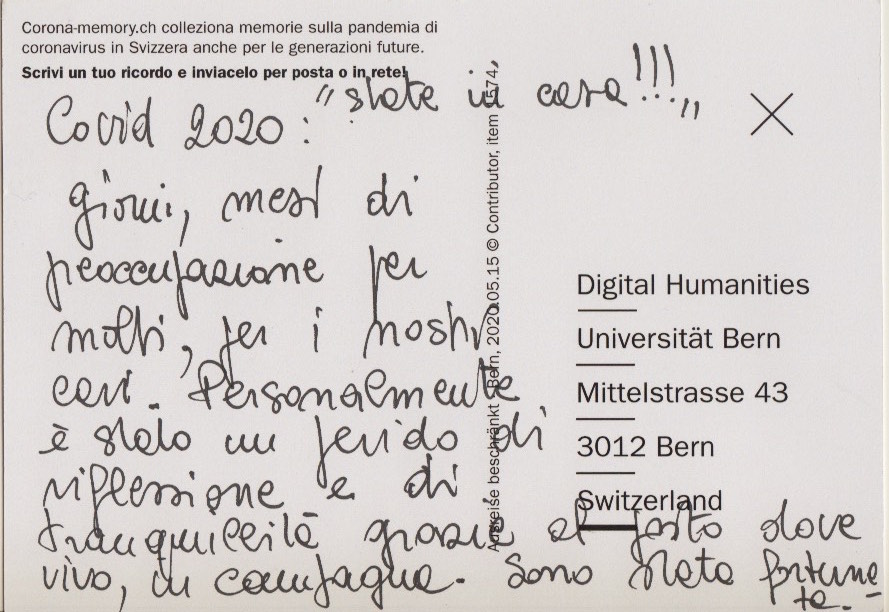 Corona-memory.ch colleziona memorie sulla pandemia di
coronavirus in Svizzera anche per le generazioni future.
Scrivi un tuo ricordo e inviacelo per posta o in rete!
Covid 2020: "state in casa!!!"
giorni, mesi di
preoccupazione per
molti, per i nostri
cari. Personalmente
è stato un periodo di
riflessione e di
tranquillità grazie al posto dove
vivo, in campagna. Sono stata fortuna-
ta.
Digital Humanities
Universität Bern
Mittelstrasse 43
3012 Bern
Switzerland
beschränkt Bern, 2020.05.15 © Contributor, item